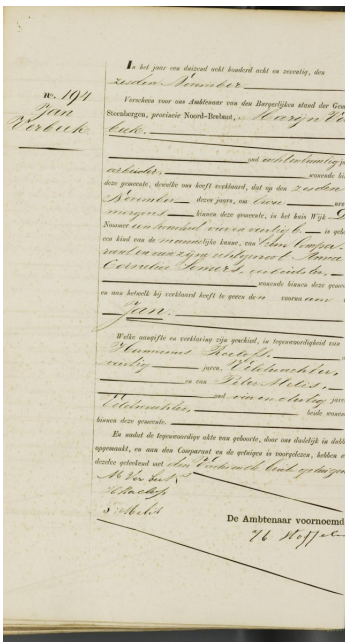 In het jaar een duizend acht honderd acht en zeventig, den
zesden November
No. 194
Jan
Verbeek
Verscheen voor ons Ambtenaar van den Burgerlijken stand der Gem
Steenbergen, provincie Noord-Brabant, Marijn Ver
beek.
oud achtentwintig j
arbeider, wonende bi
deze gemeente, dewelke ons heeft verklaard, dat op den zesden
November dezes jaars, om twee ure
morgens binnen deze gemeente, in het huis Wijk D
Nommer een honderd vier en veertig b is geb
een kind van de mannelijke kunne, van hem Compa-
rant en van zijne echtgenoot Anna
Cornelia Somers, arbeidster,
wonende binnen deze gemeent
en aan hetwelk hij verklaard heeft te geven den voornaam
Jan.
Welke aangifte en verklaring zijn geschied, in tegenwoordigheid van
Hermanus Roelofs,
veertig jaren, Veldwachter,
en van Pieter Melis,
oud vier en dertig jare
Veldwachter, beide wonen
binnen deze gemeente.
En nadat de tegenwoordige akte van geboorte, door ons dadelijk in dubb
opgemaakt, en aan den Comparant en de getuigen is voorgelezen, hebben
dezelve geteekend met
M Verbeek
H Roelofs
P Melis
De Ambtenaar voornoemd